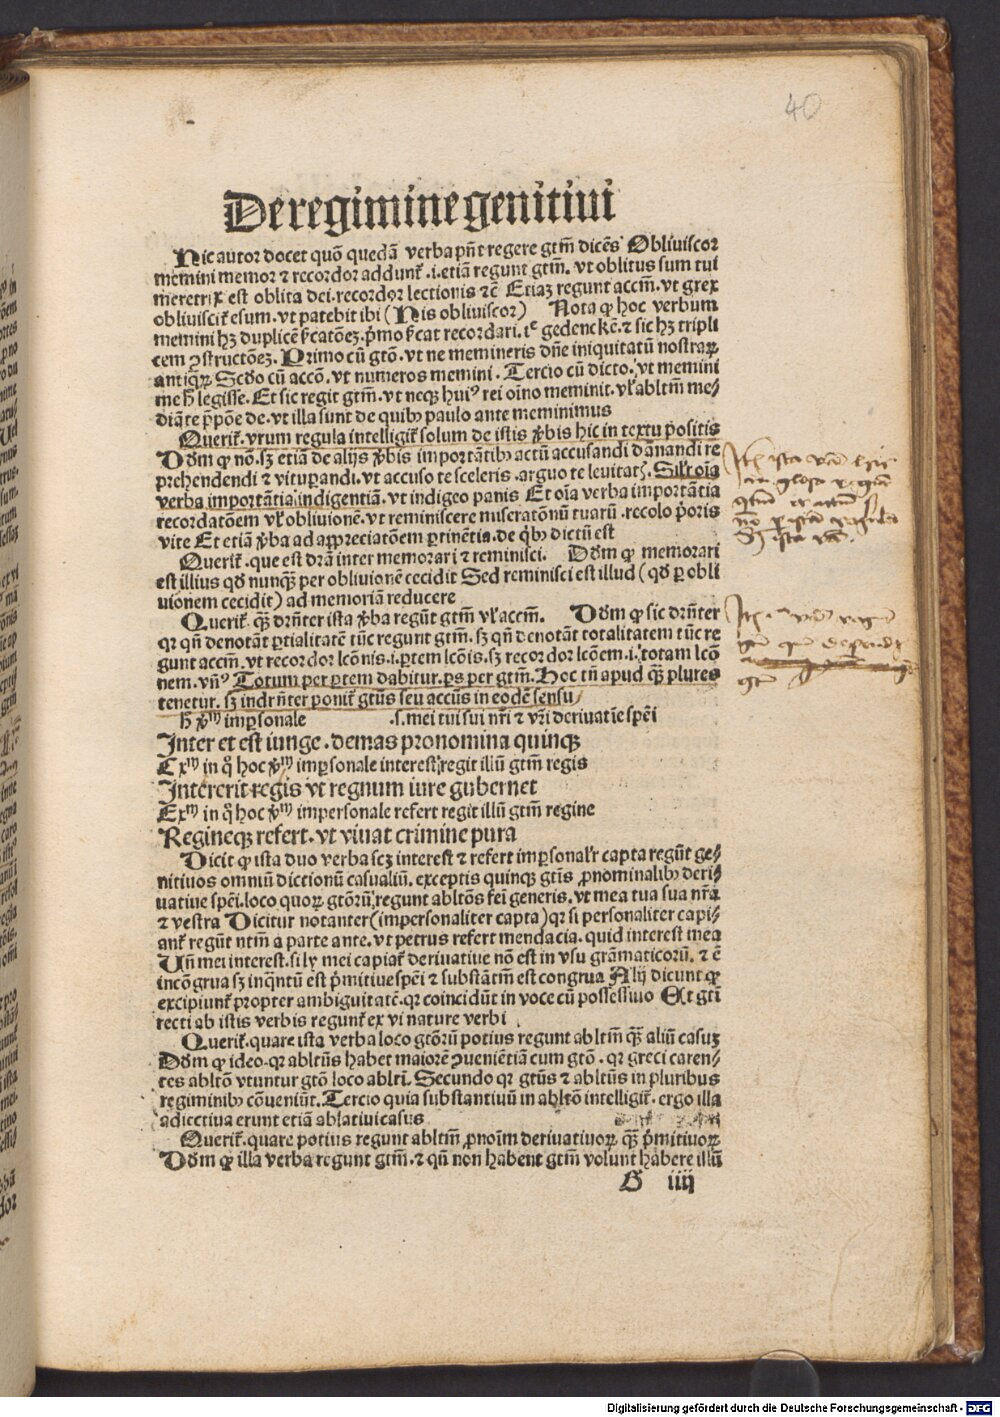 40
De regimine genitiui
Hic autor docet quō quedā verba pn̄t regere gtm̄ dicēs Obliuiscor
memini memor ⁊ recordor addunt᷑ .i. etiā regunt gtm̄. vt oblitus sum tui
meretrix est oblita dei. recordor lectionis ⁊c̄ Etiaꝫ regunt accm̄. vt grex
obliuiscit᷑ esum. vt patebit ibi (His obliuiscor) Nota ꝙ hoc verbum
memini hꝫ duplicē ſ̄catōeꝫ. p̄mo ſ̄cat recordari. i᷑ gedencken̄. ⁊ sic hꝫ tripli
cem ꝯstructōeꝫ. Primo cū gtō. vt ne memineris dn̄e iniquitatū nostraꝝ
antiqꝝ Scd̄o cū accō. vt numeros memini. Tercio cū dicto. vt memini
me h̄ legisse. Et sic regit gtm̄. vt neqꝫ huiꝰ rei oīno meminit. vl᷑ abltm̄ me⸗
diāte p̄pōe de. vt illa sunt de quibꝫ paulo ante meminimus
Querit᷑. vrum regula intelligit᷑ solum de istis v̄bis hic in textu positis
Dd̄m ꝙ nō. sꝫ etiā de alijs v̄bis importātibꝫ actū accusandi dānandi re
prehendendi ⁊ vituꝑandi. vt accuso te sceleris. arguo te leuitatꝭ. Silr̄ oīa
verba importātia indigentiā. vt indigeo panis Et oīa verba importātia
recordatōem vl᷑ obliuionē. vt reminiscere miseratōnū tuarū. recolo p̄oris
vite Et etiā v̄ba ad appreciatōem ꝑtinētia. de qͥbꝫ dictū est
Querit᷑. que est dr̄a inter memorari ⁊ reminisci. Dd̄m ꝙ memorari
est illius qd̄ nunqꝫ̄ per obliuionē cecidit Sed reminisci est illud (qd̄ ꝑ obli
uionem cecidit) ad memoriā reducere
Querit᷑. qꝫ̄ drn̄ter ista v̄ba regūt gtm̄ vl᷑ accm̄. Dd̄m ꝙ sic drn̄ter
qꝛ qn̄ denotāt ꝑtialitatē tūc regunt gtm̄. sꝫ qn̄ denotāt totalitatem tūc re
gunt accm̄. vt recordor lcōnis. i. ꝑtem lcōis. sꝫ recordor lcōem. i. totam lcō
nem. vn̄ꝰ Totum per ꝑtem dabitur. ps per gtm̄. Hoc tn̄ apud qꝫ̄ plures
tenetur. sꝫ indrn̄ter ponit᷑ gtūs seu accūs in eodē sensu
h̄ v̄ꝫ impsonale .s. mei tui sui nr̄i ⁊ vr̄i deriuatīe spēi
Inter et est iunge. demas pronomina quinqꝫ
Exꝫ in qͦ hoc v̄ꝫ imꝑsonale interest regit illū gtm̄ regis
Intererit regis vt regnum iure gubernet
Exꝫ in qͦ hoc v̄ꝫ impersonale refert regit illū gtm̄ regine
Regineqꝫ refert. vt viuat crimine pura
Dicit ꝙ ista duo verba scꝫ interest ⁊ refert imꝑsonalr̄ capta regūt ge⸗
nitiuos omniū dictionū casualiū. exceptis quinqꝫ gtīs ꝓnominalibꝫ deri⸗
uatiue spēi. loco quoꝝ gtōrū regunt abltōs fēi generis. vt mea tua sua nr̄a
⁊ vestra Dicitur notanter (impersonaliter capta) qꝛ si personaliter capi⸗
ant᷑ regūt ntm̄ a parte ante. vt petrus refert mendacia. quid interest mea
Vn̄ mei interest. si ly mei capiat᷑ deriuatiue nō est in vsu grāmaticorū. ⁊ ē
incōgrua sꝫ inqn̄tū est p̄mitiue spēi ⁊ substātm̄ est congrua Alij dicunt ꝙ
excipiunt᷑ propter ambiguitatē. qꝛ coincidūt in voce cū possessiuo Et gti
recti ab istis verbis regunt᷑ ex vi nature verbi
Querit᷑. quare ista verba loco gtōrū potius regunt abltm̄ qꝫ̄ aliū casuꝫ
Dd̄m ꝙ ideo. qꝛ abltūs habet maiorē ꝯueniētiā cum gtō. qꝛ greci caren⸗
tes abltō vtuntur gtō loco ablti. Secundo qꝛ gtūs ⁊ abltūs in pluribus
regiminibꝫ cōueniūt. Tercio quia substantiuū in abltō intelligit᷑. ergo illa
adiectiua erunt etiā ablatiui casus
Querit᷑. quare potius regunt abltm̄ ꝓnoīm deriuatiuoꝝ qꝫ̄ p̄mitiuoꝝ
Dd̄m ꝙ illa verba regunt gtm̄. ⁊ qn̄ non habent gtm̄ volunt habere illū
G iiij
Digitalisierung gefördert durch die Deutsche Forschungsgemeinschaft - DFG